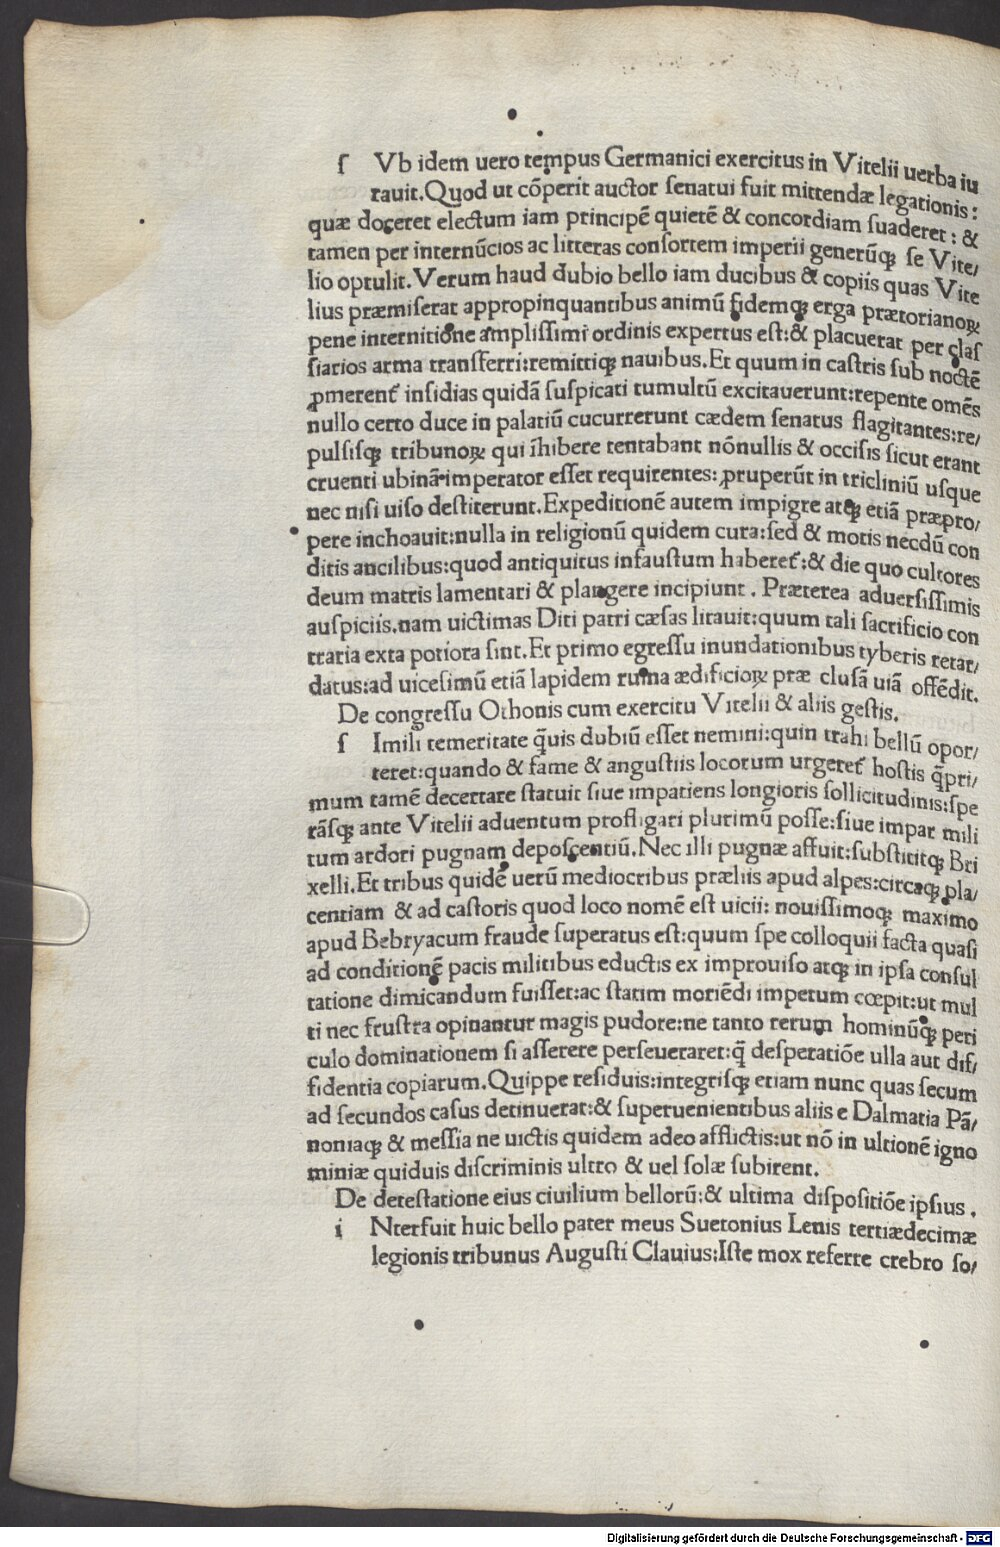 ſ Vb idem uero tempus Germanici exercitus in Vitelii uerba iu
rauit.Quod ut cōperit auctor ſenatui fuit mittendæ legationis:
quæ doceret electum iam principē quietē & concordiam ſuaderet: &
tamen per internūcios ac litteras conſortem imperii generūqꝫ ſe Vite/
lio optulit.Verum haud dubio bello iam ducibus & copiis quas Vite
lius præmiſerat appropinquantibus animū fidemqꝫ erga prætorianoꝝ
pene internitione ampliſſimi ordinis expertus eſt:& placuerat per claſ
ſiarios arma transferri:remittiqꝫ nauibus.Et quum in caſtris ſub noctē
ꝓmerent᷑ inſidias quidā ſuſpicati tumultū excitauerunt:repente omēs
nullo certo duce in palatiū cucurrerunt cædem ſenatus flagitantes:re/
pulſiſqꝫ tribunoꝝ qui īhibere tentabant nōnullis & occiſis ſicut erant
cruenti ubinā imperator eſſet requirentes:ꝓruperūt in tricliniū uſque
nec niſi uiſo deſtiterunt.Expeditionē autem impigre atqꝫ etiā præpro/
pere inchoauit:nulla in religionū quidem cura:ſed & motis necdū con
ditis ancilibus:quod antiquitus infauſtum haberet᷑:& die quo cultores
deum matris lamentari & plangere incipiunt . Præterea aduerſiſſimis
auſpiciis.nam uictimas Diti patri cæſas litauit:quum tali ſacrificio con
traria exta potiora ſint.Et primo egreſſu inundationibus tyberis retar/
datus:ad uiceſimū etiā lapidem ruina ædificioꝝ præ cluſā uiā offēdit.
De congreſſu Othonis cum exercitu Vitelii & aliis geſtis.
ſ Imili temeritate q̄uis dubiū eſſet nemini:quin trahi bellū opor/
teret:quando & fame & anguſtiis locorum urgeret᷑ hoſtis q̄pri/
mum tamē decertare ſtatuit ſiue impatiens longioris ſollicitudinis:ſpe
rāſqꝫ ante Vitelii aduentum profligari plurimū poſſe:ſiue impar mili
tum ardori pugnam depoſcentiū.Nec illi pugnæ affuit:ſubſtititqꝫ Bri
xelli.Et tribus quidē uerū mediocribus præliis apud alpes:circaqꝫ pla/
centiam & ad caſtoris quod loco nomē eſt uicii: nouiſſimoqꝫ maximo
apud Bebryacum fraude ſuperatus eſt:quum ſpe colloquii facta quaſi
ad conditionē pacis militibus eductis ex improuiſo atqꝫ in ipſa conſul
tatione dimicandum fuiſſet:ac ſtatim moriēdi impetum cœpit:ut mul
ti nec fruſtra opinantur magis pudore:ne tanto rerum hominūqꝫ peri
culo dominationem ſi aſſerere perſeueraret:q̄ deſperatiōe ulla aut dif/
fidentia copiarum.Quippe reſiduis:integriſqꝫ etiam nunc quas ſecum
ad ſecundos caſus detinuerat:& ſuperuenientibus aliis e Dalmatia Pā/
noniaqꝫ & meſſia ne uictis quidem adeo afflictis:ut nō in ultionē igno
miniæ quiduis diſcriminis ultro & uel ſolæ ſubirent.
De deteſtatione eius ciuilium bellorū:& ultima diſpoſitiōe ipſius .
i Nterfuit huic bello pater meus Suetonius Lenis tertiædecimæ
legionis tribunus Auguſti Clauius:Iſte mox referre crebro ſo/
Digitalisierung gefördert durch die Deutsche Forschungsgemeinschaft - DFG